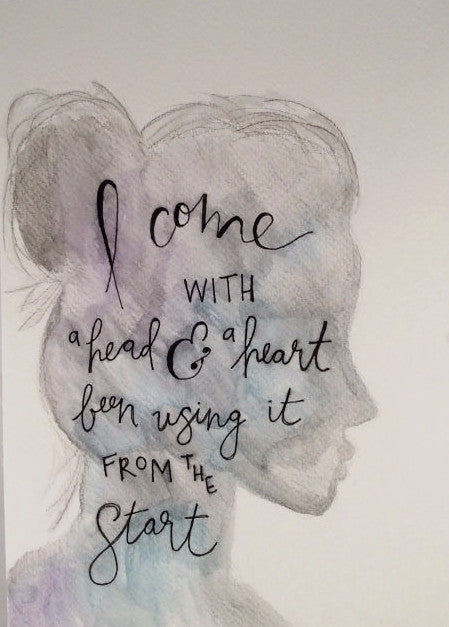 I come
WITH
a head & a heart
been using it
FROM THE
Start